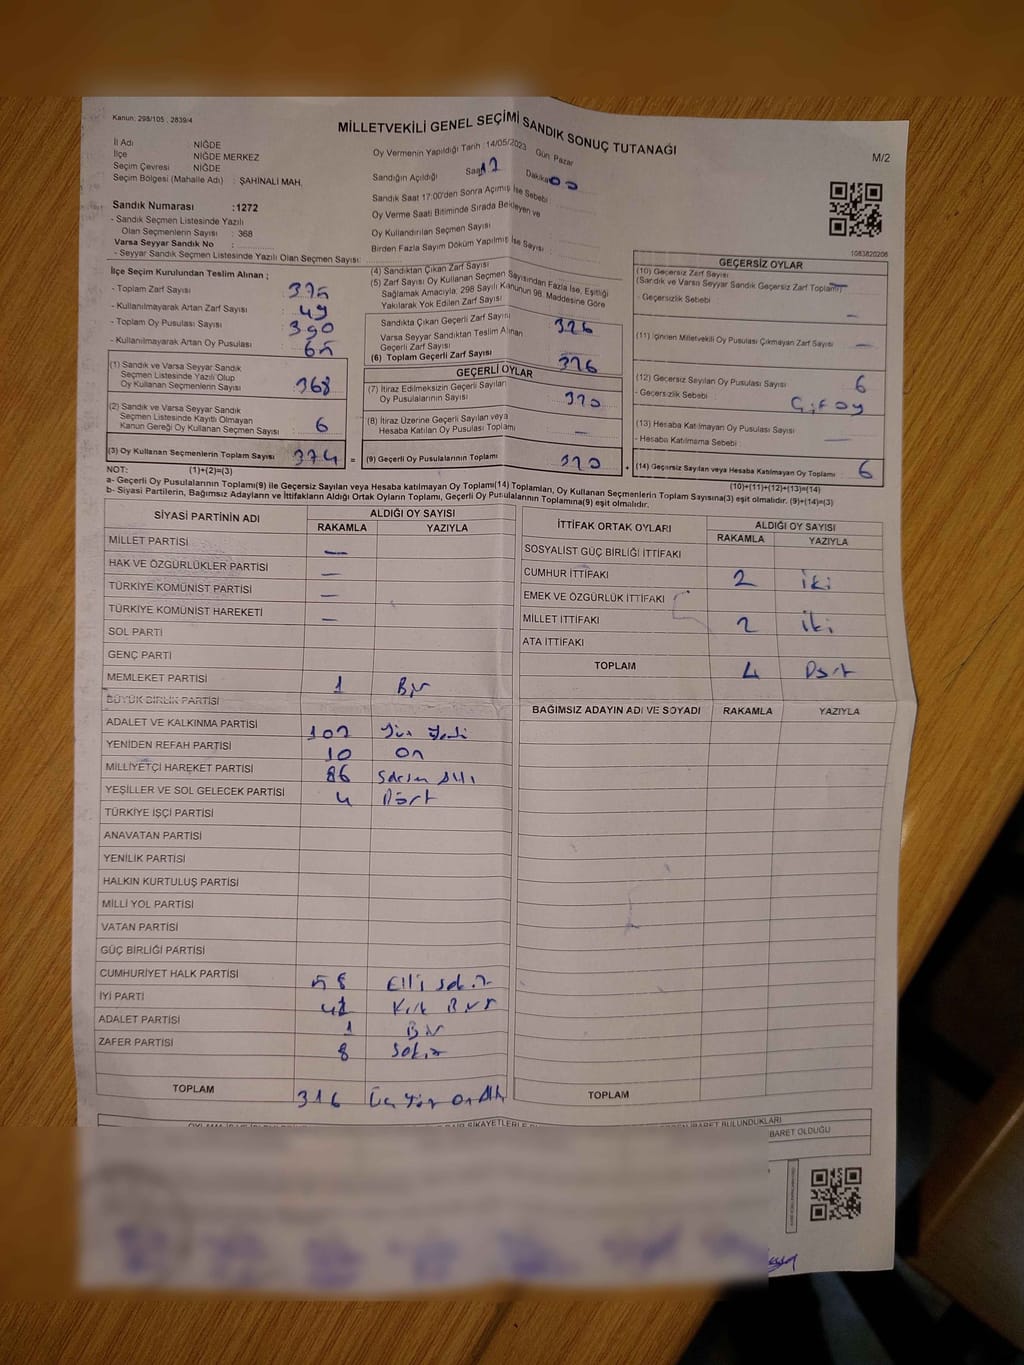 Kanun: 298/105 ; 2839/4
MİLLETVEKİLİ GENEL SEÇİMİ SANDIK SONUÇ TUTANAĞI
M/2
İl Adı NİĞDE
İlçe NİĞDE MERKEZ
Seçim Çevresi NİĞDE
Seçim Bölgesi (Mahalle Adı) : ŞAHİNALİ MAH.
Oy Vermenin Yapıldığı Tarih : 14/05/2023 Gün Pazar
Sandığın Açıldığı Saat 17 Dakika 00
Sandık Saat 17:00'den Sonra Açılmış İse Sebebi
Oy Verme Saati Bitiminde Sırada Bekleyen ve
Oy Kullandırılan Seçmen Sayısı
Birden Fazla Sayım Döküm Yapılmış İse Sayısı
Sandık Numarası :1272
- Sandık Seçmen Listesinde Yazılı
Olan Seçmenlerin Sayısı : 368
Varsa Seyyar Sandık No :
- Seyyar Sandık Seçmen Listesinde Yazılı Olan Seçmen Sayısı:
1083820206
İlçe Seçim Kurulundan Teslim Alınan ;
- Toplam Zarf Sayısı 375
- Kullanılmayarak Artan Zarf Sayısı 49
- Toplam Oy Pusulası Sayısı 390
- Kullanılmayarak Artan Oy Pusulası 65
(1) Sandık ve Varsa Seyyar Sandık
Seçmen Listesinde Yazılı Olup
Oy Kullanan Seçmenlerin Sayısı 368
(2) Sandık ve Varsa Seyyar Sandık
Seçmen Listesinde Kayıtlı Olmayan
Kanun Gereği Oy Kullanan Seçmen Sayısı 6
(3) Oy Kullanan Seçmenlerin Toplam Sayısı 374 =
(4) Sandıktan Çıkan Zarf Sayısı
(5) Zarf Sayısı Oy Kullanan Seçmen Sayısından Fazla İse, Eşitliği
Sağlamak Amacıyla, 298 Sayılı Kanunun 98. Maddesine Göre
Yakılarak Yok Edilen Zarf Sayısı
Sandıkta Çıkan Geçerli Zarf Sayısı 326
Varsa Seyyar Sandıktan Teslim Alınan
Geçerli Zarf Sayısı
(6) Toplam Geçerli Zarf Sayısı 326
GEÇERLİ OYLAR
(7) İtiraz Edilmeksizin Geçerli Sayılan
Oy Pusulasının Sayısı 320
(8) İtiraz Üzerine Geçerli Sayılan veya
Hesaba Katılan Oy Pusulası Toplamı —
(9) Geçerli Oy Pusulalarının Toplamı 320
GEÇERSİZ OYLAR
(10) Geçersiz Zarf Sayısı
(Sandık ve Varsa Seyyar Sandık Geçersiz Zarf Toplamı) —
- Geçersizlik Sebebi —
(11) İçinden Milletvekili Oy Pusulası Çıkmayan Zarf Sayısı —
(12) Geçersiz Sayılan Oy Pusulası Sayısı 6
- Geçersizlik Sebebi : Çift oy
(13) Hesaba Katılmayan Oy Pusulası Sayısı
- Hesaba Katılmama Sebebi —
(14) Geçersiz Sayılan veya Hesaba Katılmayan Oy Toplamı 6
NOT: (1)+(2)=(3) (10)+(11)+(12)+(13)=(14)
a- Geçerli Oy Pusulalarının Toplamı(9) ile Geçersiz Sayılan veya Hesaba Katılmayan Oy Toplamı(14) Toplamları, Oy Kullanan Seçmenlerin Toplam Sayısına(3) eşit olmalıdır. (9)+(14)=(3)
b- Siyasi Partilerin, Bağımsız Adayların ve İttifakların Aldığı Ortak Oyların Toplamı, Geçerli Oy Pusulalarının Toplamına(9) eşit olmalıdır.
SİYASİ PARTİNİN ADI ALDIĞI OY SAYISI
RAKAMLA YAZIYLA
MİLLET PARTİSİ —
HAK VE ÖZGÜRLÜKLER PARTİSİ —
TÜRKİYE KOMÜNİST PARTİSİ —
TÜRKİYE KOMÜNİST HAREKETİ —
SOL PARTİ
GENÇ PARTİ
MEMLEKET PARTİSİ 1 Bir
BÜYÜK BİRLİK PARTİSİ
ADALET VE KALKINMA PARTİSİ 107 Yüz Yedi
YENİDEN REFAH PARTİSİ 10 On
MİLLİYETÇİ HAREKET PARTİSİ 86 Seksen Altı
YEŞİLLER VE SOL GELECEK PARTİSİ 4 Dört
TÜRKİYE İŞÇİ PARTİSİ
ANAVATAN PARTİSİ
YENİLİK PARTİSİ
HALKIN KURTULUŞ PARTİSİ
MİLLİ YOL PARTİSİ
VATAN PARTİSİ
GÜÇ BİRLİĞİ PARTİSİ
CUMHURİYET HALK PARTİSİ 58 Elli sekiz
İYİ PARTİ 41 Kırk Bir
ADALET PARTİSİ 1 Bir
ZAFER PARTİSİ 8 Sekiz
TOPLAM 316 Üç Yüz On Altı
İTTİFAK ORTAK OYLARI ALDIĞI OY SAYISI
RAKAMLA YAZIYLA
SOSYALİST GÜÇ BİRLİĞİ İTTİFAKI
CUMHUR İTTİFAKI 2 iki
EMEK VE ÖZGÜRLÜK İTTİFAKI
MİLLET İTTİFAKI 2 iki
ATA İTTİFAKI
TOPLAM 4 Dört
BAĞIMSIZ ADAYIN ADI VE SOYADI RAKAMLA YAZIYLA
TOPLAM
BARET BULUNDUKLARI
BARET OLDUĞU